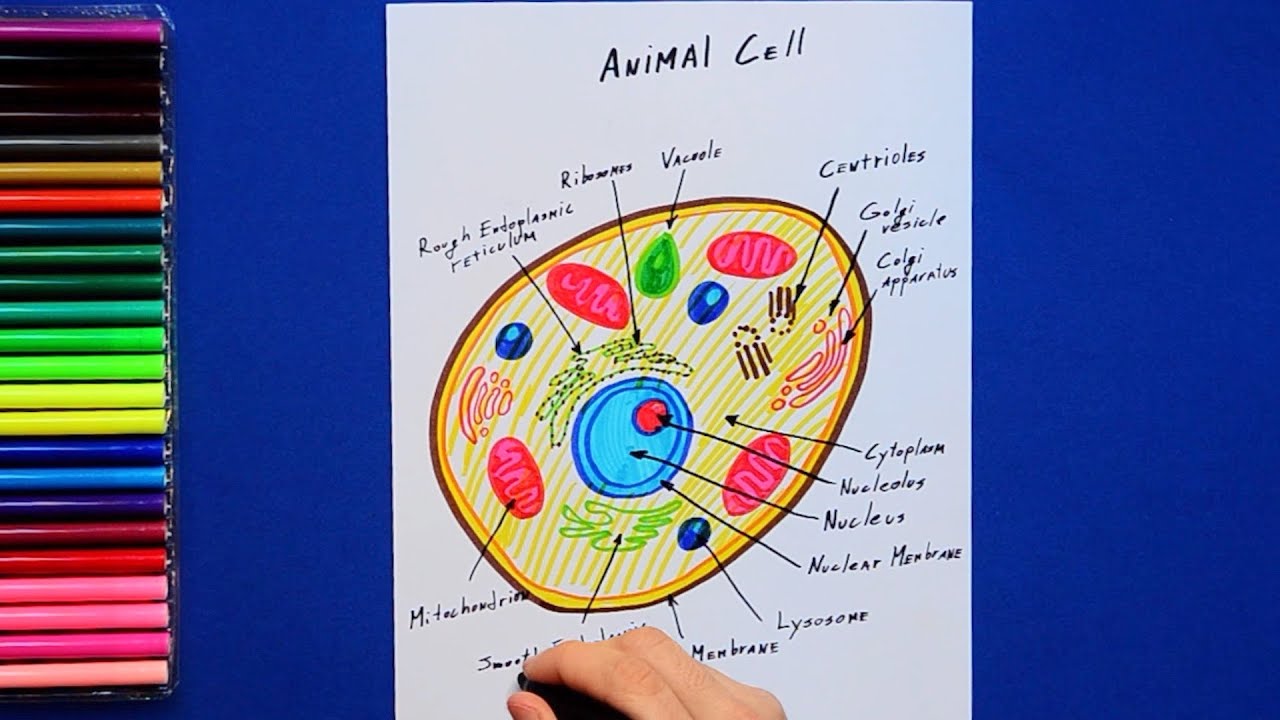 Animal Cell
Ribosomes
Vacuole
Centrioles
Rough Endoplasmic
reticulum
Golgi
vesicle
Golgi
apparatus
Cytoplasm
Nucleolus
Nucleus
Nuclear Membrane
Mitochondrion
Lysosome
Smooth
Membrane